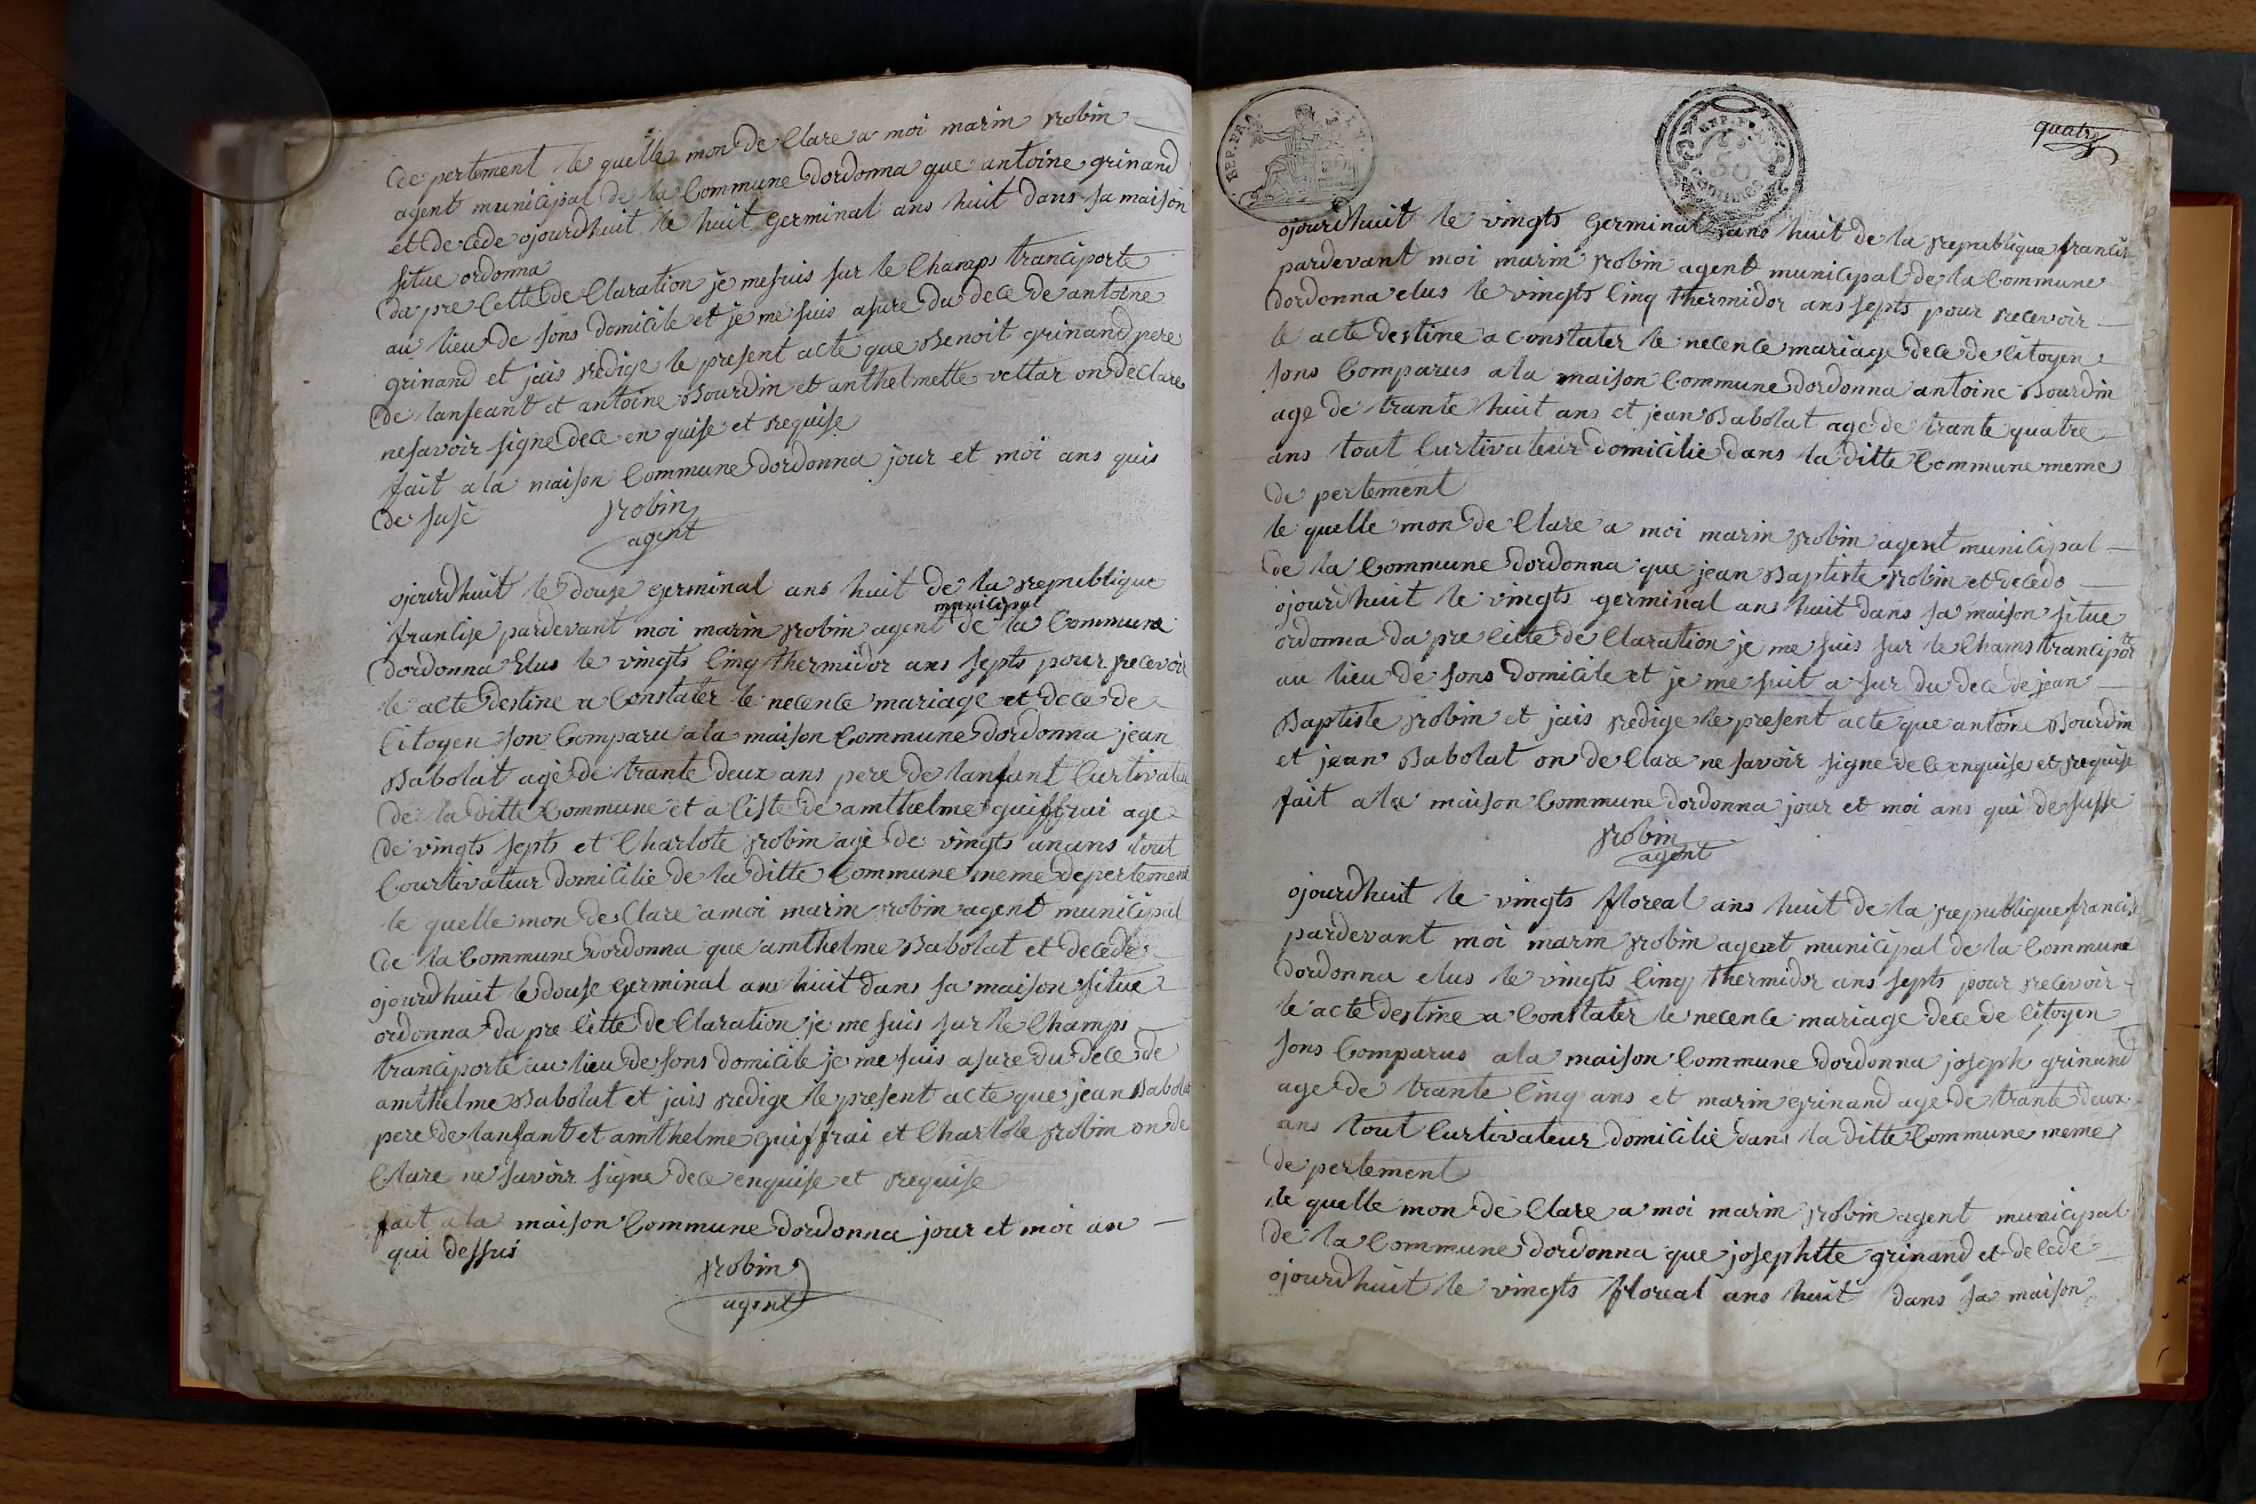 de pertement le quelle mon de Clare a moi marin robin
agent municipal de la Commune dordonna que antoine grinand
et de cede ojourdhuit le huit germinal ans huit dans sa maison
situe ordonna
da pre cette de Claration je me suis sur le Champs tranciporte
au lieu de sons domicile et je me suis asure du dece de antoine
grinand et jais redige le present acte que Benoit grinand pere
de lanfeant et antoine Bourdin et anthelmette vettar on de Clare
ne savoir signe dece en quise et requise
fait a la maison Commune dordonna jour et moi ans quis
de susé
robin
agent
ojourdhuit le douse germinal ans huit de la republique
francise pardevant moi marin robin agent municipal de la Commune
dordonna Elus le vingts cinq thermidor ans septs pour recevoir
le acte destine a Constater le necence mariage et dece de
Citoyen son Comparu a la maison Commune dordonna jean
Babolat agé de trante deux ans pere de lanfant Curtivateu
de la ditte Commune et a ciste de amthelme guiffrai age
de vingts septs et Charlote robin agé de vingts un ans tout
Courtivateur domicilie de la ditte Commune meme depertement
le quelle mon de Clare a moi marin robin agent municipal
de la Commune dordonna que amthelme Babolat et decede
ojourdhuit le douse germinal ans huit dans sa maison situe
ordonna da pre citte de Claration je me suis sur le Champs
tranciporte au lieu de sons domicile je me suis asure du dece de
amthelme Babolat et jais redige le present acte que jean Babolat
pere de lanfant et amthelme guiffrai et Charlote robin on de
Clare ne savoir signe dece enquise et requise
fait a la maison Commune dordonna jour et moi an
qui dessus
robin
agent
REP. FRA
quatre
ojourdhuit le vingts germinal ans huit de la republique francis
pardevant moi marin robin agent municipal de la Commune
dordonna elus le vingts cinq thermidor ans septs pour recevoir
le acte destine a Constater le necence mariage dece de citoyen
sons Comparus a la maison Commune dordonna antoine Bourdin
age de trante huit ans et jean Babolat age de trante quatre
ans tout Curtivateur domicilie dans la ditte Commune meme
de pertement
le quelle mon de Clare a moi marin robin agent municipal
de la Commune dordonna que jean Baptiste robin et decedo
ojourdhuit le vingts germinal ans huit dans sa maison situe
ordonna da pre citte de Claration je me suis sur le Chams trancipor
au lieu de sons domicile et je me suit a sur du dece de jean
Baptiste robin et jais redige le present acte que antoine Bourdin
et jean Babolat on de Clare ne savoir signe dece enquise et requise
fait a la maison Commune dordonna jour et moi ans qui de susse
robin
agent
ojourdhuit le vingts floreal ans huit de la republique francise
pardevant moi marin robin agent municipal de la Commune
dordonna elus le vingts cinq thermidor ans septs pour recevoir
le acte destine a Constater le necence mariage dece de Citoyen
sons Comparus a la maison Commune dordonna joseph grinand
age de trante cinq ans et marin grinand age de trante deux
ans tout Curtivateur domicilie dans la ditte Commune meme
de pertement
le quelle mon de Clare a moi marin robin agent municipal
de la Commune dordonna que josephtte grinand et decede
ojourdhuit le vingts floreal ans huit dans sa maison